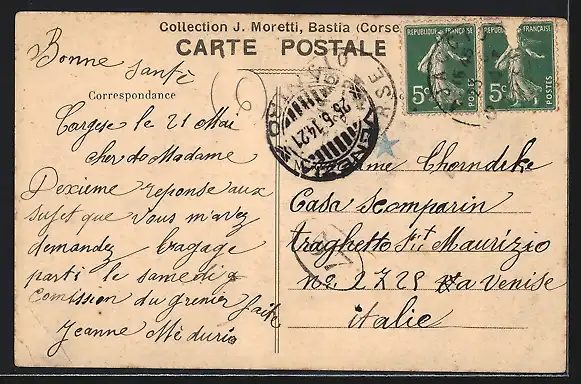 Collection J. Moretti, Bastia (Corse
CARTE POSTALE
Bonne
santé
Correspondance
Cargese le 21 Mai
cher de Madame
Dexieme reponse aux
sujet que Vous m'avez
demandez bagage
parti le samedi
Comission du grenier faite
Jeanne
REPUBLIQUE FRANÇAISE
5c
POSTES
REPUBLIQUE FRANÇAISE
5c
POSTES
26.5.14.21
VENEZIA
me Chorndike
Casa scomparin
traghetto St Maurizio
no. 2725 Venise
italie